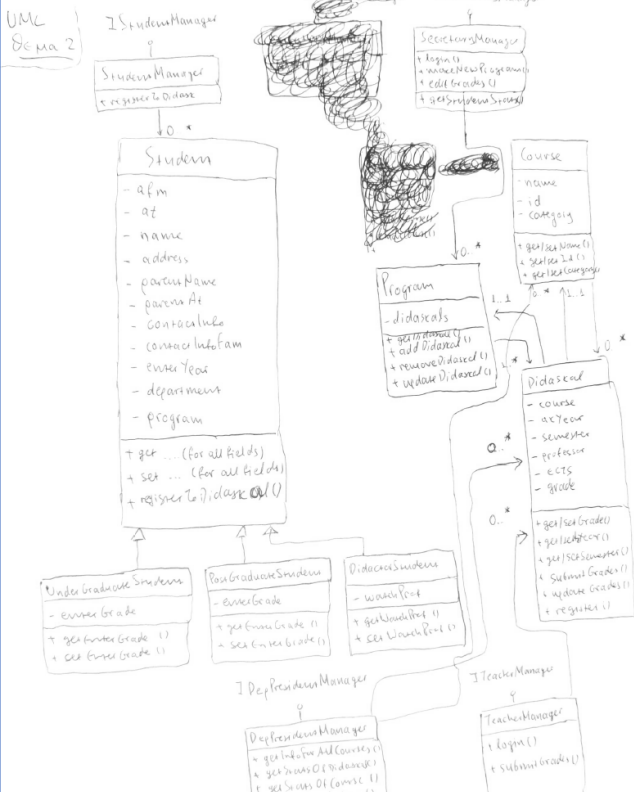 UML
Θέμα 2
IStudentManager
StudentManager
+ registerToDidask
0..*
Student
- afm
- at
- name
- address
- parentName
- parentAt
- contactInfo
- contactInfoFam
- enterYear
- department
- program
+ get ... (for all fields)
+ set ... (for all fields)
+ registerToDidaskal()
UnderGraduateStudent
- enterGrade
+ getEnterGrade ()
+ setEnterGrade ()
PostGraduateStudent
- enterGrade
+ getEnterGrade ()
+ setEnterGrade ()
DidactorStudent
- watchProf
+ getWatchProf ()
+ setWatchProf ()
SecretaryManager
+ login ()
+ makeNewProgram()
+ editGrades ()
+ getStudentStats()
Course
- name
- id
- category
+ get/setName()
+ get/setId()
+ get/setCategory
0..*
Program
- didaskals
+ getDidaskal()
+ addDidaskal ()
+ removeDidaskal ()
+ updateDidaskal ()
1..1
0..*
1..1
0..*
Didaskal
- course
- akYear
- semester
- professor
- ECTS
- grade
+ get/setGrade()
+ get/setYear()
+ get/setSemester()
+ submitGrades()
+ updateGrades()
+ register()
0..*
0..*
IDepPresidentManager
DepPresidentManager
+ getInfoForAllCourses()
+ getStatsOfDidaskal()
+ getStatsOfCourse ()
ITeacherManager
TeacherManager
+ login()
+ submitGrades()